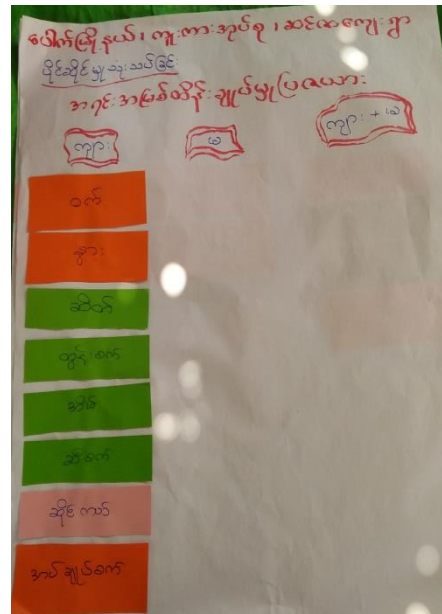 ပေါက်မြို့နယ်၊ ကူးကားအုပ်စု၊ ဆင်ထကျေးရွာ
ပိုင်ဆိုင်မှုသုံးသပ်ခြင်း
အရင်းအမြစ်ထိန်းချုပ်မှုပြဇယား
ကျား မ ကျား + မ
ဝက်
နွား
ဆိတ်
ထွန်စက်
အိမ်
ဆီစက်
ဆိုင်ကယ်
အပ်ချုပ်စက်